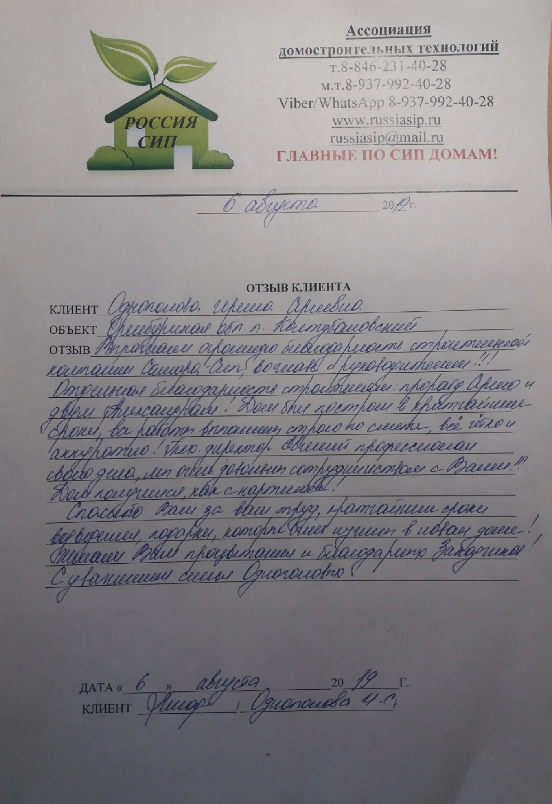 РОССИЯ
СИП
Ассоциация
домостроительных технологий
т.8-846-231-40-28
м.т.8-937-992-40-28
Viber/WhatsApp 8-937-992-40-28
www.russiasip.ru
russiasip@mail.ru
ГЛАВНЫЕ ПО СИП ДОМАМ!
6 августа 2019г.
ОТЗЫВ КЛИЕНТА
КЛИЕНТ Однополова Ирина
ОБЪЕКТ Оренбургская обл. п. Колтубановский
ОТЗЫВ Выражаем огромную благодарность строительной
компании Самара-Сип, во главе с руководителем!!!
Отдельная благодарность строителям: прорабу и
двум Александрам! Дом был построен в кратчайшие
сроки, все работы выполнены строго по смете, всё чётко и
аккуратно! директор Евгений профессионал
своего дела, мы очень довольны сотрудничеством с Вами!!!
Дом получился, как с картинки!
Спасибо Вам за ваш труд, кратчайшие сроки
возведения, подарки, которые в новом доме!
Желаем Вам процветания и благодарных Заказчиков!
С уважением семья Однополовых!
ДАТА « 6 » августа 2019 г.
КЛИЕНТ / Однополова И.С.